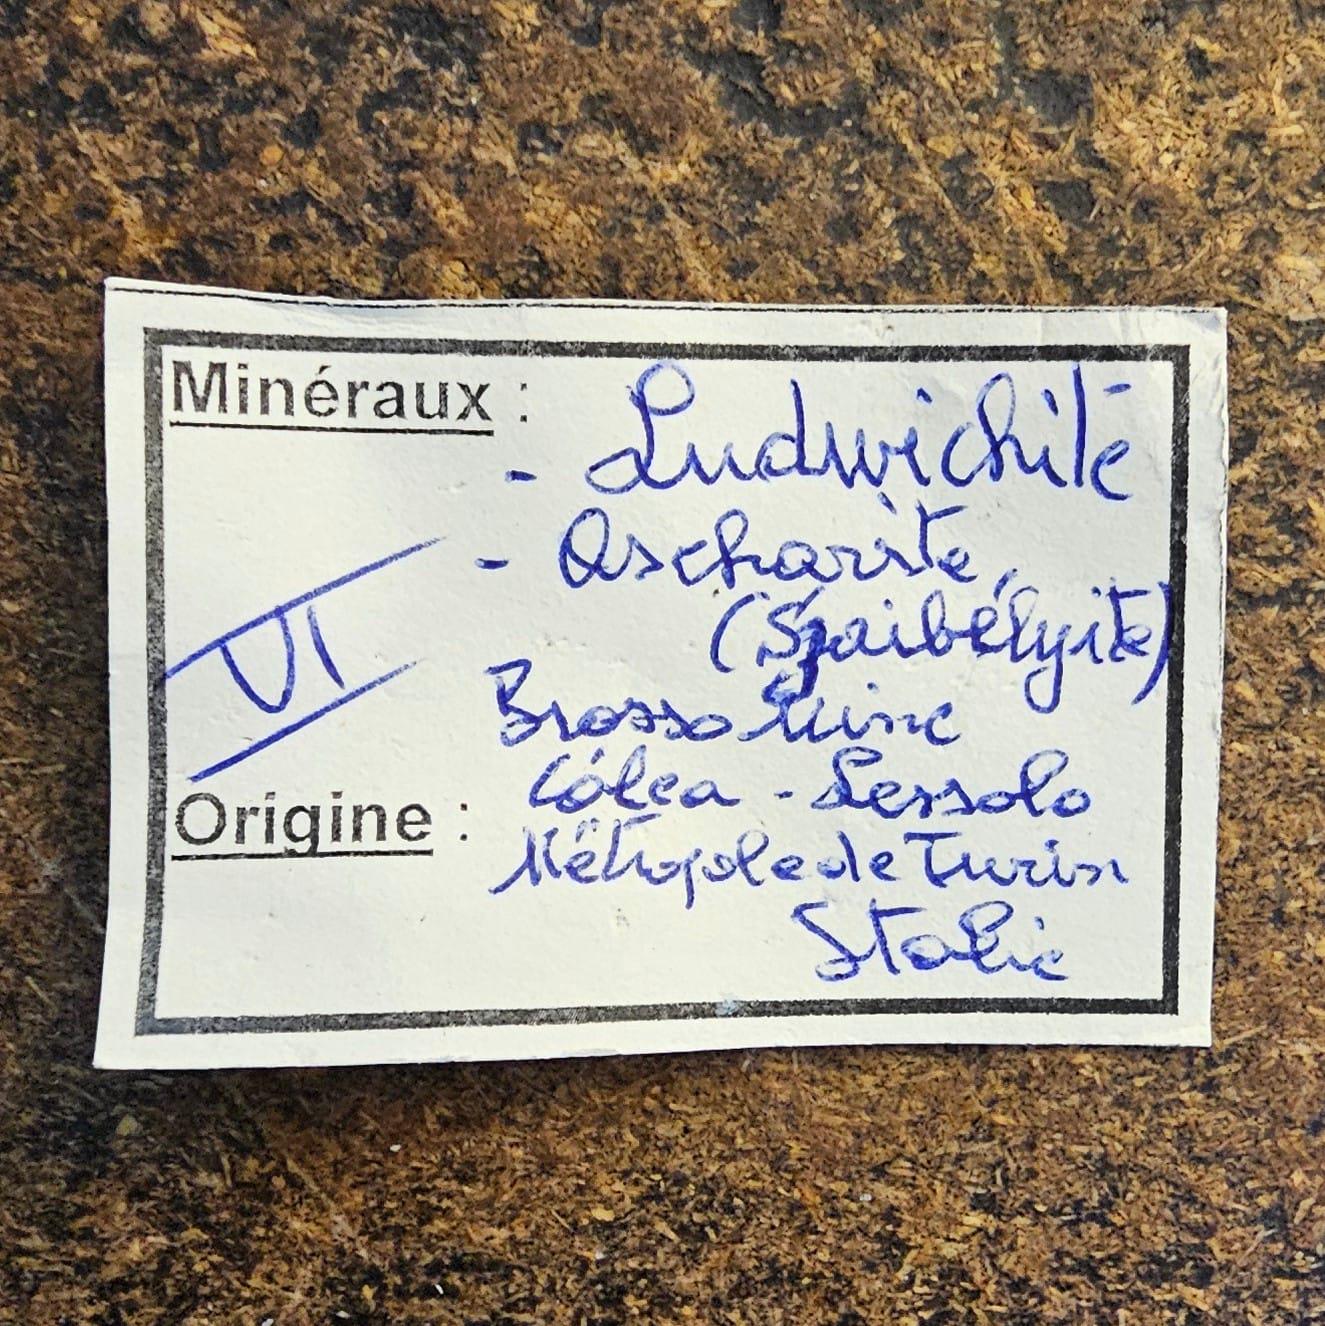 Minéraux :
- Ludwichite
- Ascharite
(Szaibélyite)
VI
Brosso Mine
Cálea - Lessolo
Origine :
Métropole de Turin
Italie